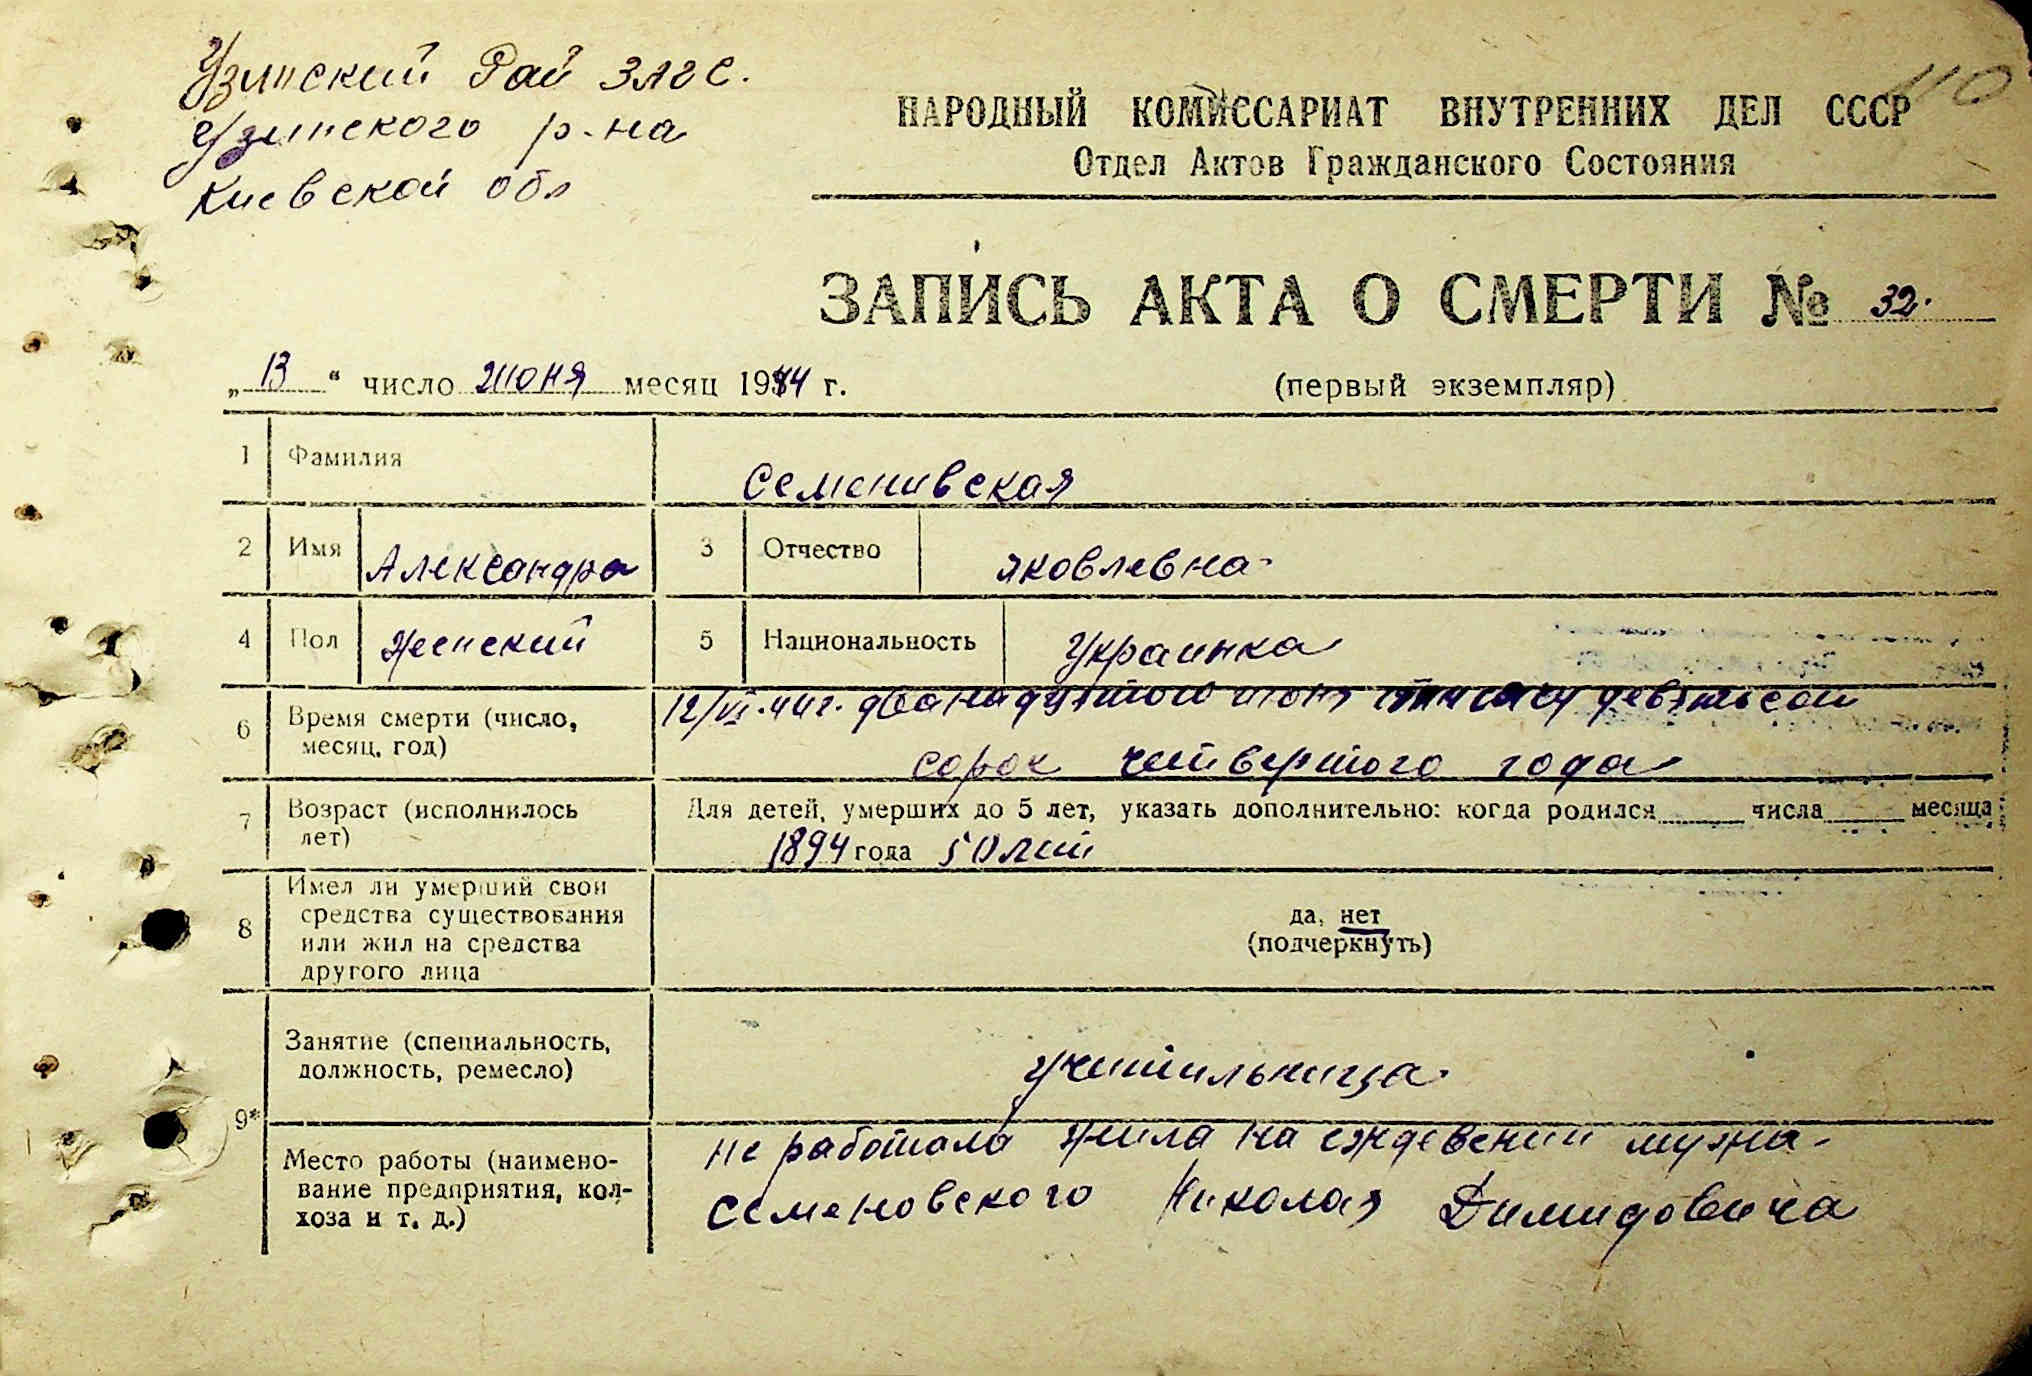 Узинский Рай ЗАГС.
Узинского р-на
Киевской обл
110
НАРОДНЫЙ КОМИССАРИАТ ВНУТРЕННИХ ДЕЛ СССР
Отдел Актов Гражданского Состояния
ЗАПИСЬ АКТА О СМЕРТИ № 32.
„13“ число июня месяц 1944 г.
(первый экземпляр)
1 Фамилия Семенивская
2 Имя Александра 3 Отчество Яковлевна
4 Пол Женский 5 Национальность Украинка
6 Время смерти (число, месяц, год) 12/VI.44г. двонадцятого июня тысячу девятьсот
сорок четвертого года
7 Возраст (исполнилось лет) Для детей, умерших до 5 лет, указать дополнительно: когда родился числа месяца
1894 года 50 лет
8 Имел ли умерший свои
средства существования
или жил на средства
другого лица
да, нет
(подчеркнуть)
9* Занятие (специальность,
должность, ремесло)
учительница
Место работы (наимено-
вание предприятия, кол-
хоза и т. д.)
не работала жила на еждевении мужа
Семеновского Николая Димидовича